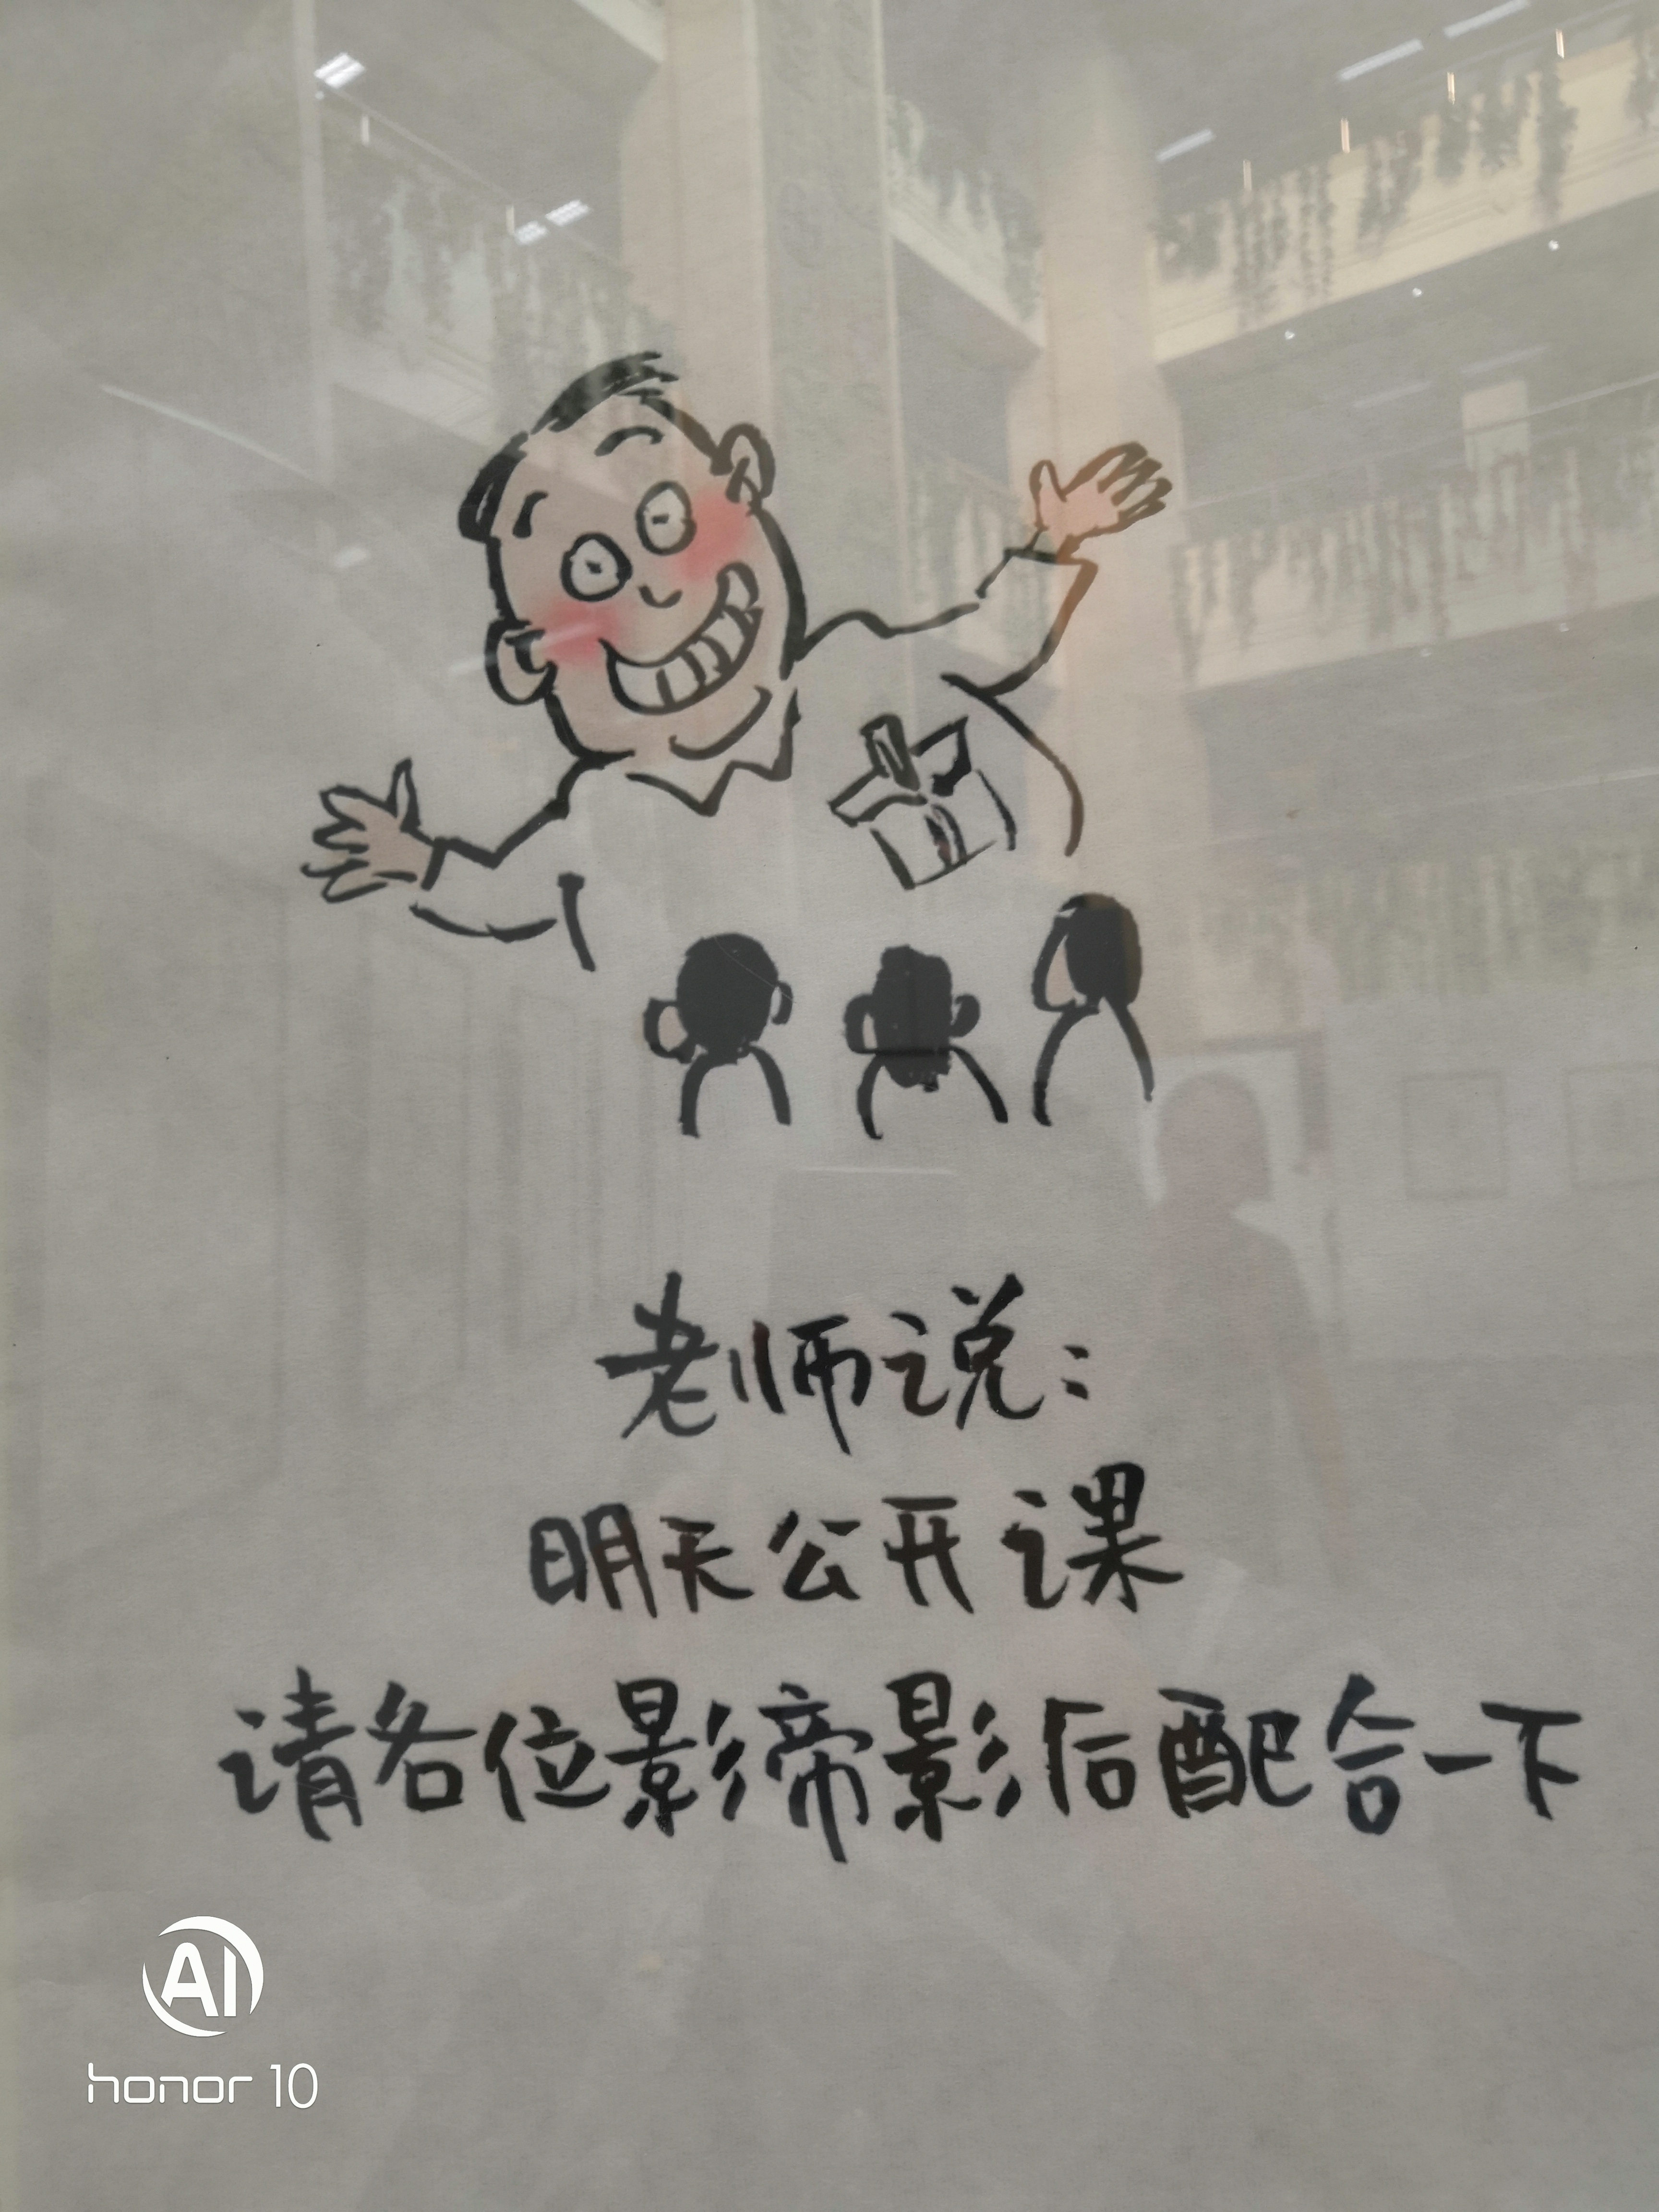 老师说：
明天公开课
请各位影帝影后配合一下
AI
honor 10